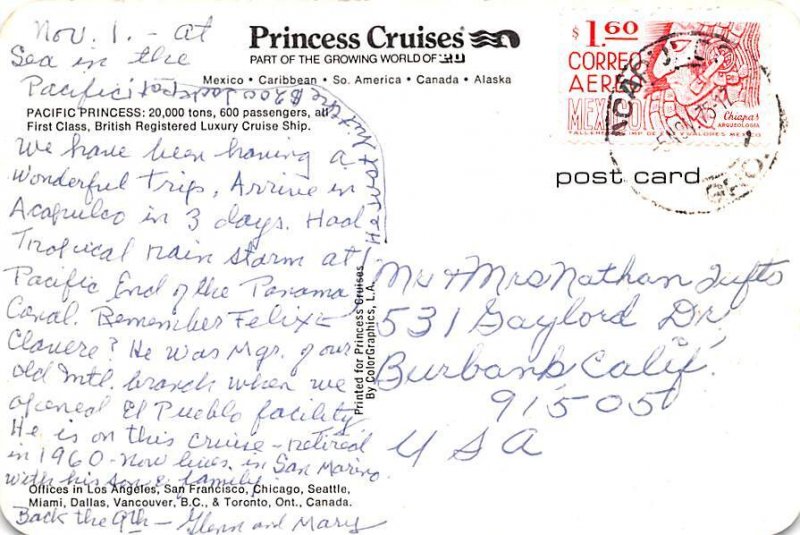 Nov. 1. - at
Sea in the
Pacific
Princess Cruises
PART OF THE GROWING WORLD OF P&O
Mexico • Caribbean • So. America • Canada • Alaska
PACIFIC PRINCESS: 20,000 tons, 600 passengers, all
First Class, British Registered Luxury Cruise Ship.
We have been having a
wonderful trip, Arrive in
Acapulco in 3 days. Had
Tropical rain storm at
Pacific End of the Panama
Canal. Remember Felix
He was Mgr. of our
old Mtl. branch when we
opened El Pueblo facility
He is on this cruise - retired
in 1960 - now lives in San Marino
with his son & family.
Back the 9th - Glenn and Mary
He just hit the $200 jackpot
Offices in Los Angeles, San Francisco, Chicago, Seattle,
Miami, Dallas, Vancouver, B.C., & Toronto, Ont., Canada.
Printed for Princess Cruises
By ColorGraphics, L.A.
$1.60
CORREO
AEREO
MEXICO
Chiapas
ARQUEOLOGIA
ACAPULCO
post card
Mr & Mrs Nathan Tufts
531 Gaylord Dr.
Burbank Calif.
91505
USA